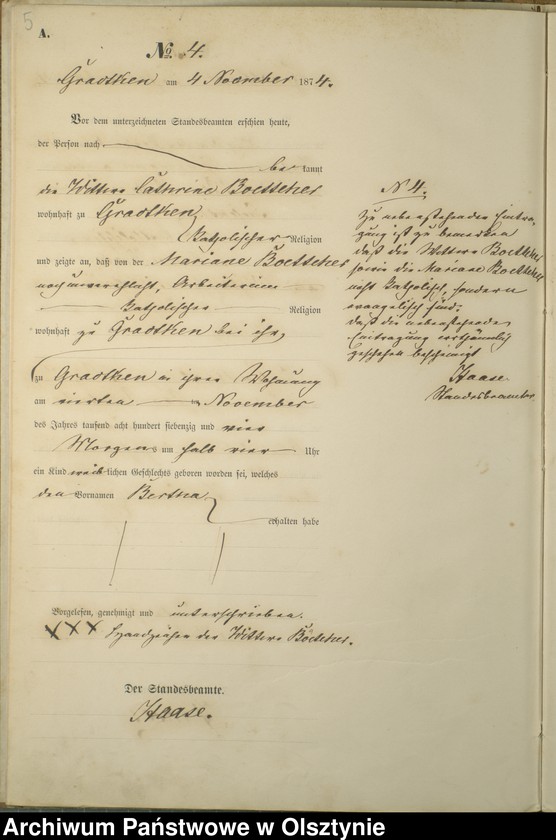 5
A.
No. 4.
Gradtken am 4 November 1874.
Vor dem unterzeichneten Standesbeamten erschien heute,
der Person nach
bekannt
die Wittwe Cathrine Boettcher
wohnhaft zu Gradtken
Katholischer Religion
und zeigte an, daß von der Mariane Boettcher
noch unverehlicht, Arbeiterin
Katholischer Religion
wohnhaft zu Gradtken bei ihr,
zu Gradtken in ihrer Wohnung
am vierten ten November
des Jahres tausend acht hundert siebenzig und vier
Morgens um halb vier Uhr
ein Kind weiblichen Geschlechts geboren worden sei, welches
den Vornamen Bertha
erhalten habe
Vorgelesen, genehmigt und unterschrieben.
XXX Handzeichen der Wittwe Böttcher.
Der Standesbeamte.
Haase.
N 4.
Zu nebenstehender Eintra-
gung ist zu bemerken
daß die Wittwe Boettcher
sowie die Mariane Boettcher
nicht Katholisch, sondern
evangelisch sind;
daß die nebenstehende
Eintragung
geschehen bescheinigt
Haase
Standesbeamter
Archiwum Państwowe w Olsztynie